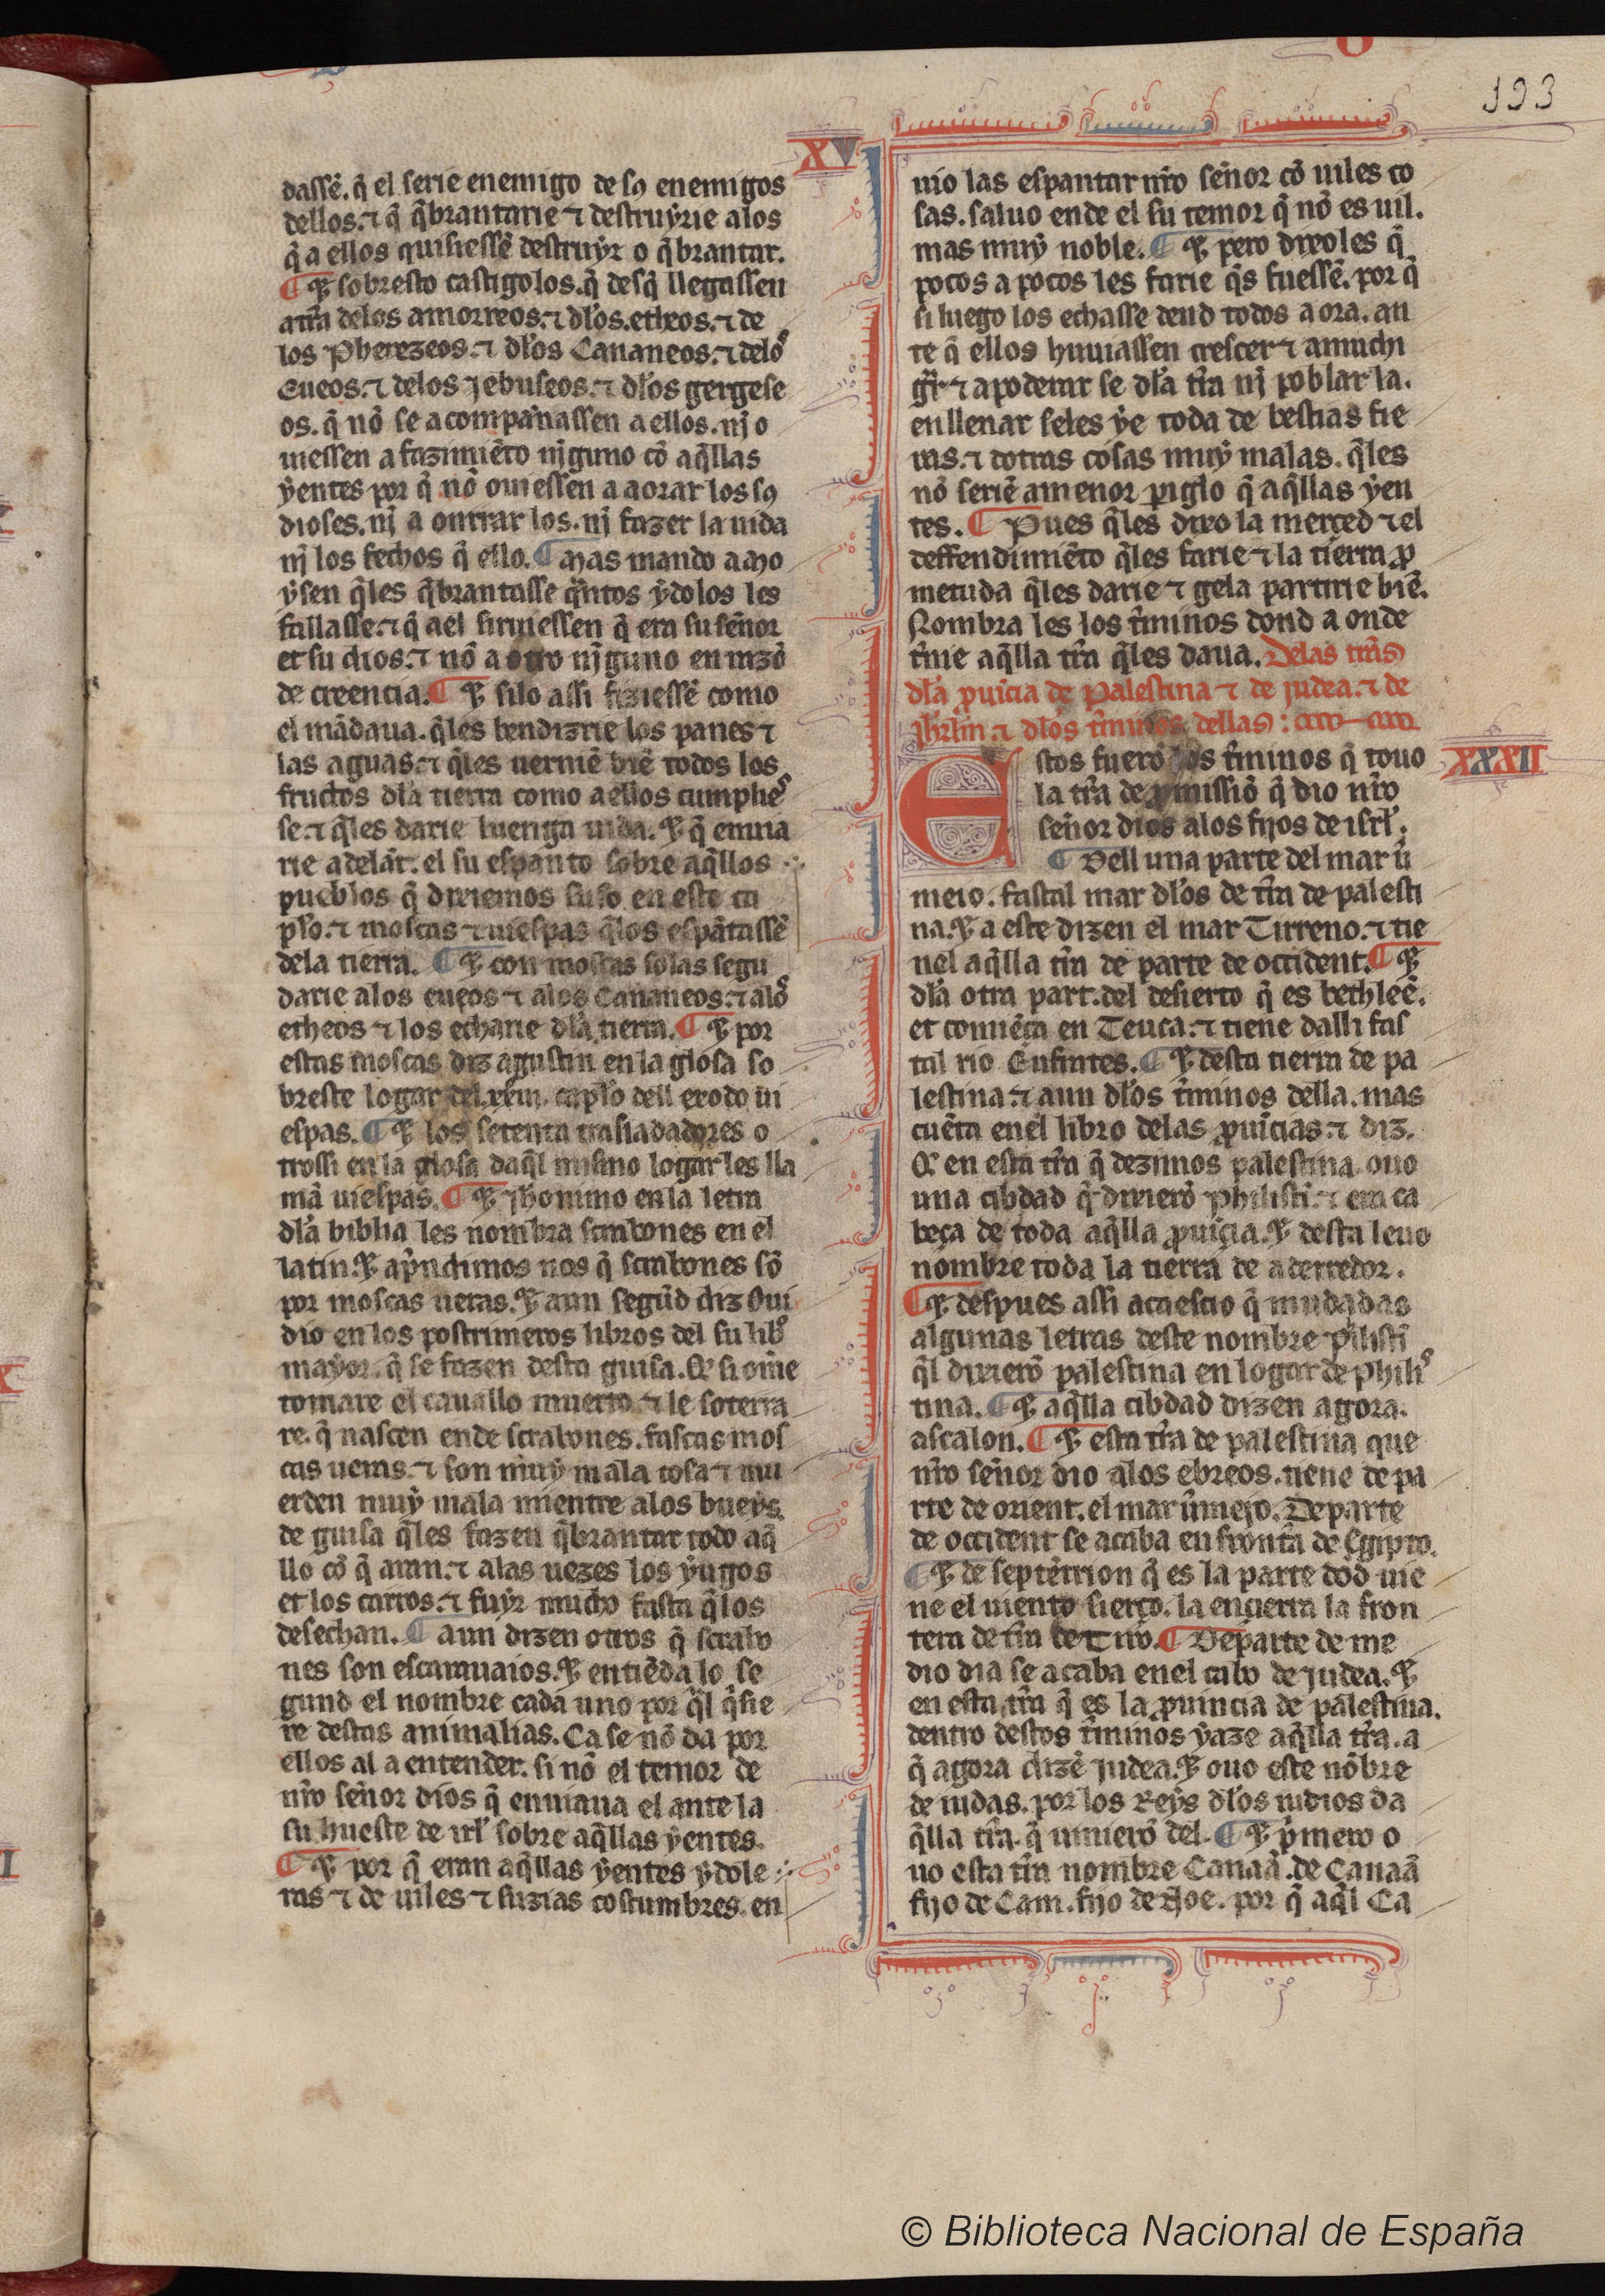 193
XV
dassẽ. q̃ el serie enemigo de sꝯ enemigos
dellos. ⁊ q̃ q̃brantarie ⁊ destruẏrie alos
q̃ a ellos quisiessẽ destruẏr o q̃brantar.
¶ Et sobresto castigolos. q̃ desq̃ llegassen
a tr̃ra delos amorreos. ⁊ dl̃os. etheos. ⁊ de
los Pherezeos. ⁊ dl̃os Cananeos. ⁊ delos
Eueos. ⁊ delos Jebuseos. ⁊ dl̃os gergese
os. q̃ nõ se acompannassen a ellos. nj o
uiessen afazimiẽto njguno cõ aq̃llas
ẏentes por q̃ nõ ouiessen a aorar los sꝯ
dioses. nj a onrrar los. nj fazer la uida
nj los fechos q̃ ello. ¶ Mas mando a Mo
ẏsen q̃les q̃brantasse q̃ntos ẏdolos les
fallasse. ⁊ q̃ a el siruiessen q̃ era su sẽnor
et su dios. ⁊ nõ a otro njguno en razõ
de creencia. ¶ Et silo assi fiziessẽ como
el mãdaua. q̃les bendizrie los panes ⁊
las aguas. ⁊ q̃les uerniẽ biẽ todos los
fructos dl̃a tierra como a ellos cumplies
se. ⁊ q̃les darie luenga uida. Et q̃ enuia
rie adelãt. el su espanto sobre aq̃llos
pueblos q̃ dixiemos suso en este ca
pl̃o. ⁊ moscas ⁊ uiespas q̃los espãtassẽ
dela tierra. ¶ Et con moscas solas segu
darie alos eueos ⁊ alos Cananeos. ⁊ alos
etheos ⁊ los echarie dl̃a tierra. ¶ Et por
estas moscas diz agustin en la glosa so
breste logar del xxiij. capl̃o dell exodo ui
espas. ¶ Et los setenta trasladadores o
trossi en la glosa daq̃l mismo logar les lla
mã uiespas. ¶ Et Jheronimo en la letra
dl̃a biblia les nombra scrabones en el
latin. Et ap̃ndimos nos q̃ scrabones sõ
por moscas ueras. Et aun segũd diz Oui
dio en los postrimeros libros del su libro
maẏor. q̃ se fazen desta guisa. Q̃ si om̃e
tomare el cauallo muerto. ⁊ le soterra
re. q̃ nascen ende scrabones. fascas mos
cas ueras. ⁊ son muẏ mala cosa ⁊ mu
erden muẏ mala mientre alos bueẏs.
de guisa q̃les fazen q̃brantar todo aq̃
llo cõ q̃ aran. ⁊ alas uezes los ẏugos
et los carros. ⁊ fuẏr mucho fasta q̃los
desechan. ¶ aun dizen otros q̃ scrabo
nes son escarauaios. Et entiẽdalo se
gund el nombre cada uno por q̃l q̃sie
re destas animalias. Ca se nõ da por
ellos al a entender. si nõ el temor de
nr̃o sẽnor dios q̃ enuiaua el ante la
su hueste de irl̃ sobre aq̃llas ẏentes.
¶ Et por q̃ eran aq̃llas ẏentes ẏdole
ras ⁊ de uiles ⁊ suzias costumbres. en
uio las espantar nr̃o sẽnor cõ uiles co
sas. saluo ende el su temor q̃ nõ es uil.
mas muẏ noble. ¶ Et pero dixoles q̃
pocos a pocos les farie q̃s fuessẽ. por q̃
si luego los echasse dend todos a ora. an
te q̃ ellos huuiassen crescer ⁊ amuchi
gr̃ ⁊ apoderar se dl̃a tr̃ra nj poblar la.
enllenar seles ẏe toda de bestias fie
ras. ⁊ dotras cosas muẏ malas. q̃les
nõ seriẽ a menor piglo q̃ aq̃llas ẏen
tes. ¶ Pues q̃les dixo la merced ⁊ el
deffendimiẽto q̃les farie ⁊ la tierra ꝓ
metuda q̃les darie ⁊ gela partirie biẽ.
Nombra les los t̃minos dond a onde
t̃nie aq̃lla tr̃ra q̃les daua. Delas tr̃ras
dl̃a ꝓuĩcia de Palestina ⁊ de judea. ⁊ de
Jhrl̃m. ⁊ dl̃os t̃minos dellas:
XXXII
Estos fuerõ los t̃minos q̃ touo
la tr̃ra de ꝓmissiõ q̃ dio nr̃o
sẽnor dios alos fijos de isrl̃.
¶ Dell una parte del mar ũ
meio. fastal mar dl̃os de tr̃ra de palesti
na. Et a este dizen el mar Tirreno. ⁊ tie
nel aq̃lla tr̃ra de parte de occident. ¶ Et
dl̃a otra part. del desierto q̃ es bethleẽ.
et comiẽça en Teuca. ⁊ tiene dalli fas
tal rio Eufrates. ¶ Et desta tierra de pa
lestina. ⁊ aun dl̃os t̃minos della. mas
cuẽta en el libro delas ꝓuĩcias. ⁊ diz.
Q̃ en esta tr̃ra q̃ dezimos palestina. ouo
una cibdad q̃ dixierõ Philistĩ. ⁊ era ca
beça de toda aq̃lla ꝓuĩcia. Et desta leuo
nombre toda la tierra de aderredor.
¶ Et despues assi acaescio q̃ mudadas
algunas letras deste nombre philistĩ
q̃l dixierõ palestina en logar de Philis
tina. ¶ Et aq̃lla cibdad dizen agora.
ascalon. ¶ Et esta tr̃ra de palestina que
nr̃o sẽnor dio alos ebreos. tiene de pa
rte de orient. el mar ũmejo. De parte
de occident se acaba en fronta de Egipto.
¶ Et de septẽtrion q̃ es la parte dõd uie
ne el uiento sierço. la encierra la fron
tera de tr̃ra de Tiro. ¶ Departe de me
dio dia se acaba en el cabo de Judea. Et
en esta tr̃ra q̃ es la ꝓuincia de palestina.
dentro destos t̃minos ẏaze aq̃lla tr̃ra. a
q̃ agora dizẽ judea. Et ouo este nõbre
de iudas. por los Reẏs dl̃os iudios da
q̃lla tr̃ra. q̃ uinierõ del. ¶ Et p̃mero o
uo esta tr̃ra nombre Canaã. de Canaã
fijo de Cam. fijo de Noe. por q̃ aq̃l Ca
© Biblioteca Nacional de España